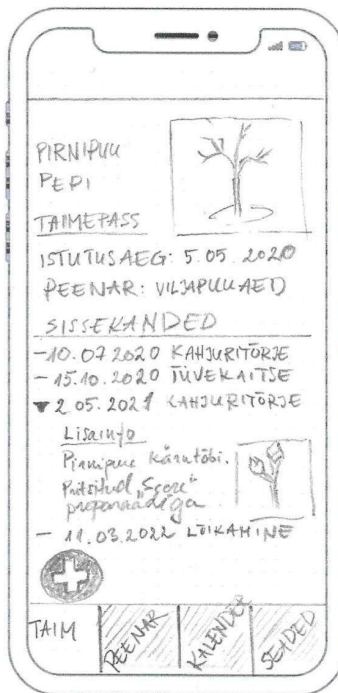 PIRNIPUU
PEPI
TAIMEPASS
ISTUTUSAEG: 5.05.2020
PEENAR: VILJAPUUAED
SISSEKANDED
-10.07.2020 KAHJURITÕRJE
-15.10.2020 TÜVEKAITSE
▼2.05.2021 KAHJURITÕRJE
Lisainfo
Pirnipuu kärntõbi.
Pritsitud „Score"
preparaadiga
- 11.03.2022 LÕIKAMINE
+
TAIM
PEENAR
KALENDER
SEADED